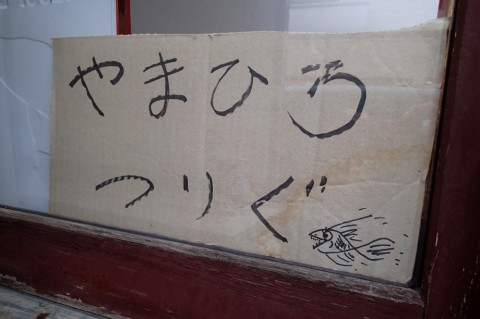 やまひろ
つりぐ